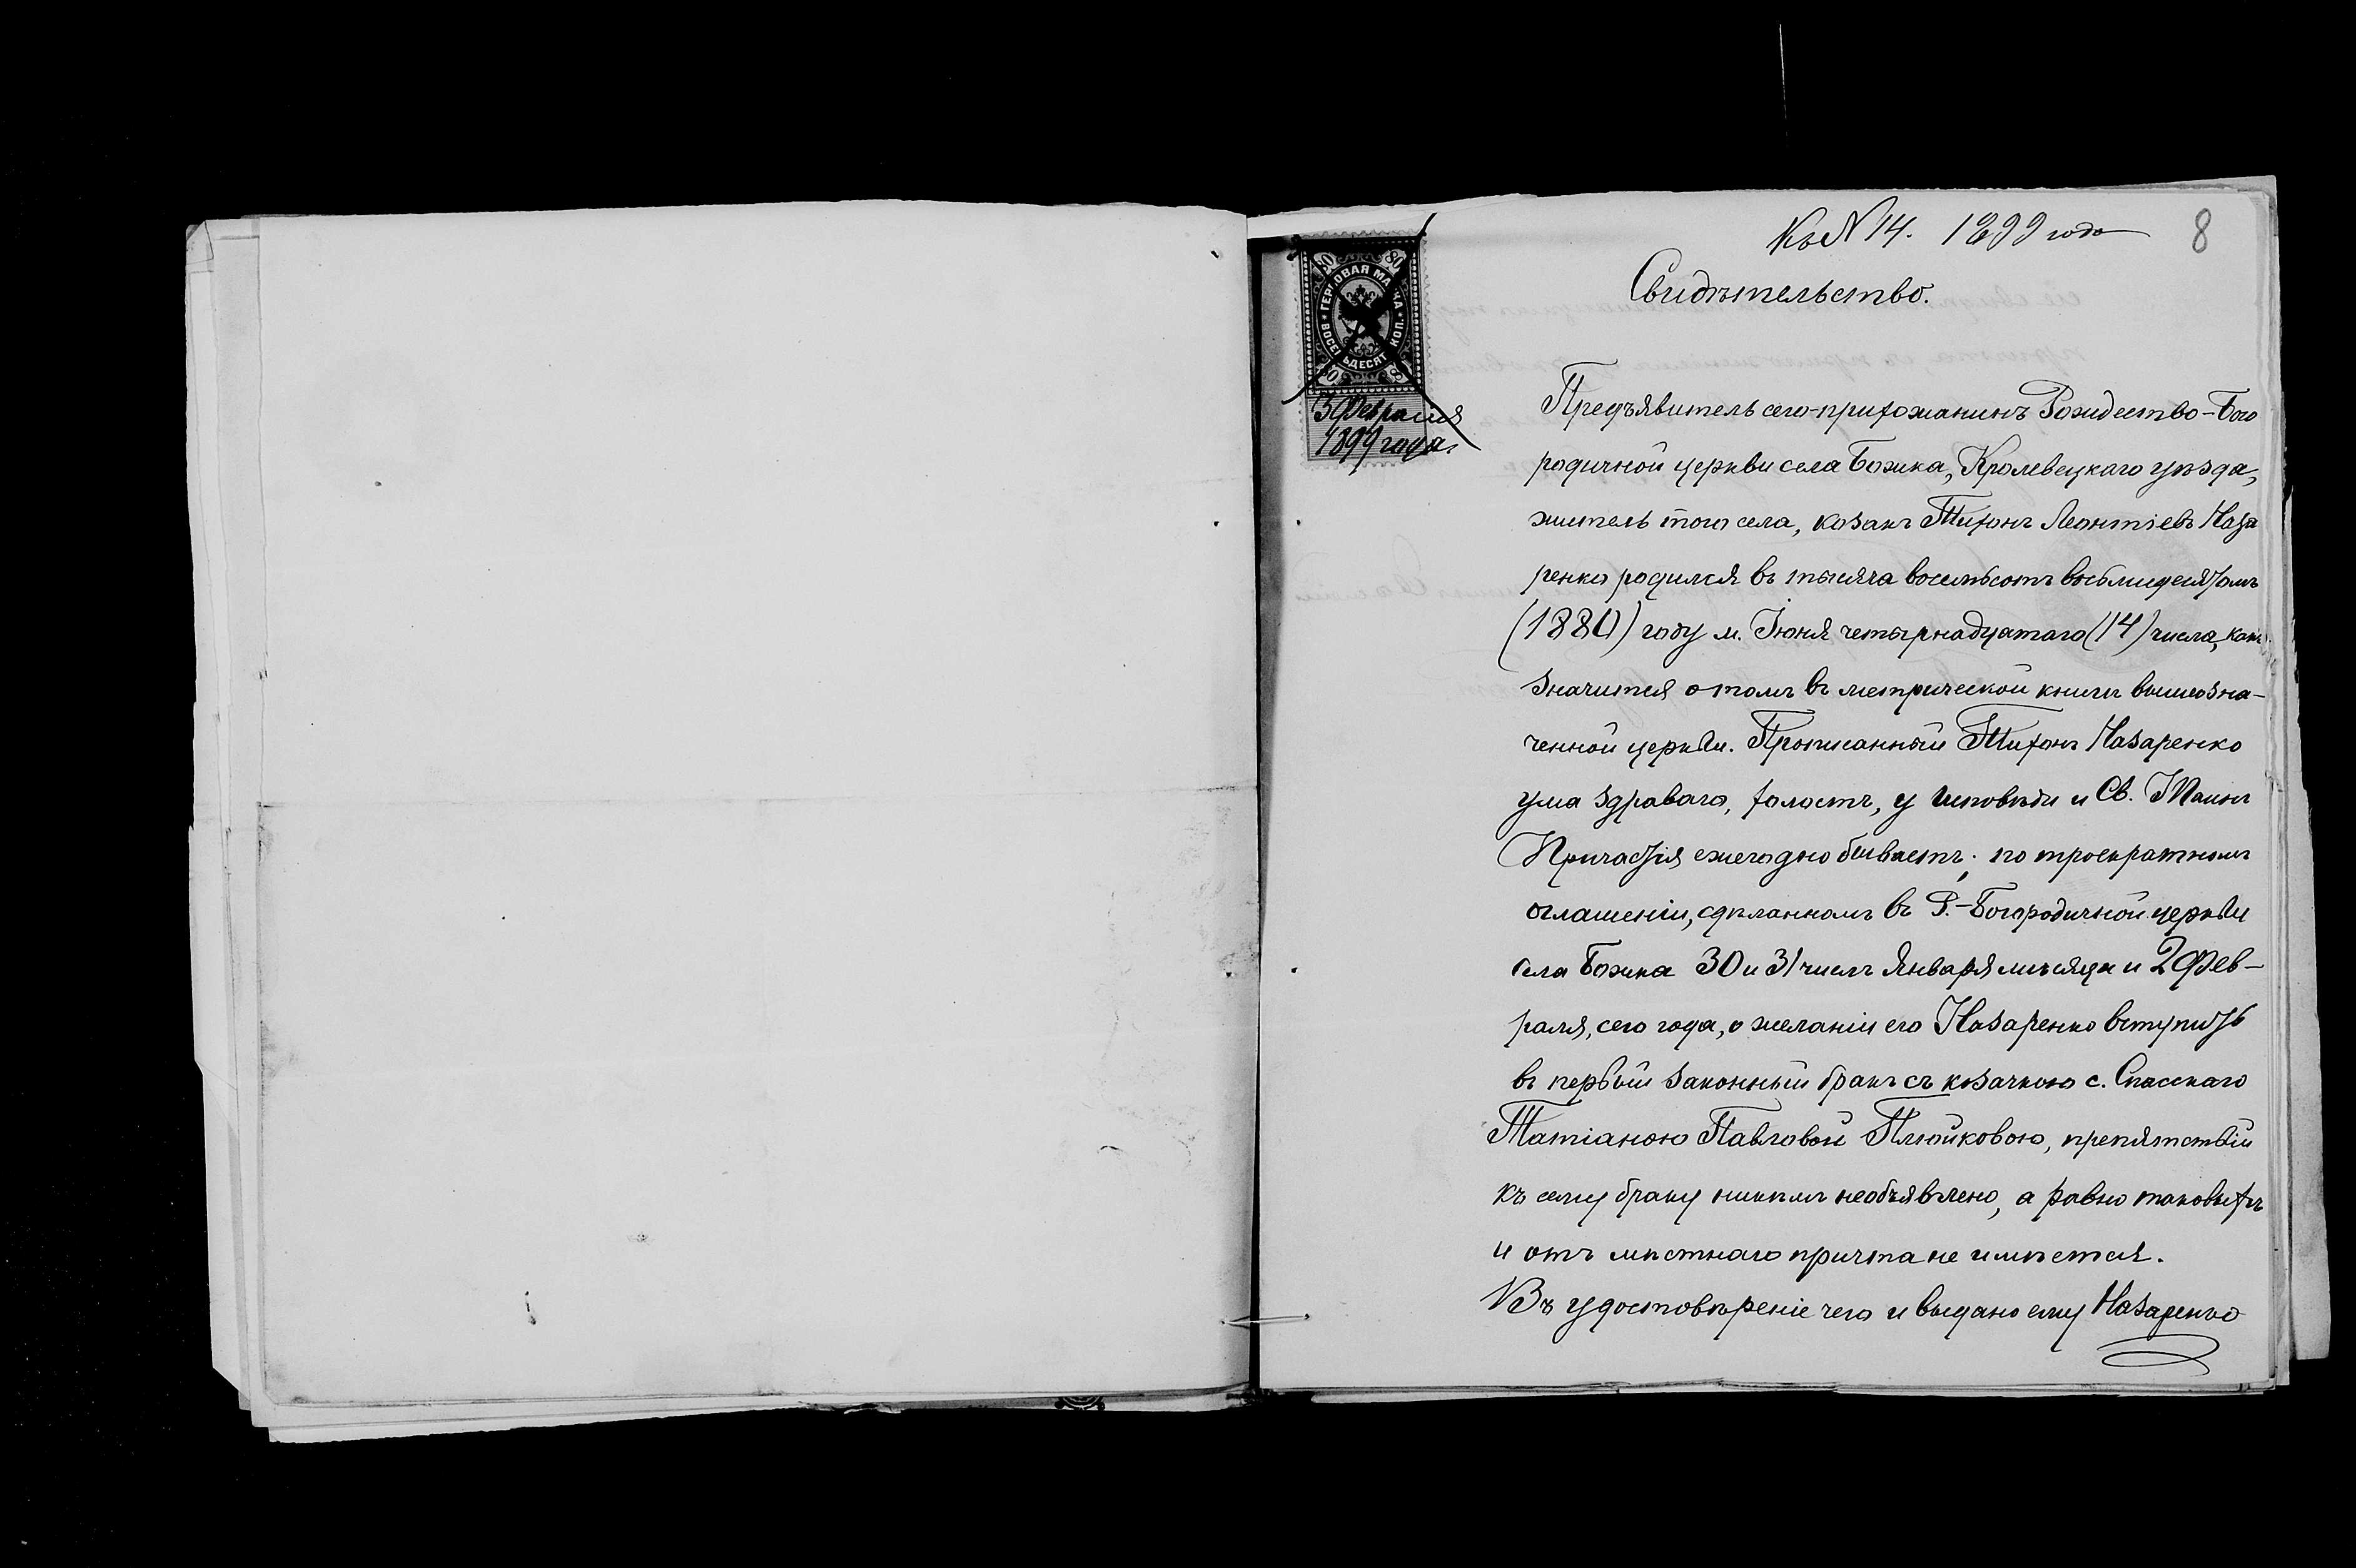 Къ № 14. 1899 года
8
Свидѣтельство.
80 80
ГЕРБОВАЯ МАРКА
ВОСЕМЬДЕСЯТ КОП.
80 80
3 Февраля
1899 года.
Предъявитель сего-прихожанинъ Рождество-Бого
родичной церкви села Божка, Кролевецкаго уѣзда,
житель того села, козакъ Тихонъ Леонтіевъ Наза
ренко родился въ тысяча восемьсотъ восьмидесятомъ
(1880) году м. Іюня четырнадцатаго (14) числа, какъ
значится о томъ въ метрической книгѣ вышеозна-
ченной церкви. Прописанный Тихонъ Назаренко
ума здраваго, холостъ, у исповѣди и Св. Таинъ
Причастія ежегодно бываетъ; по троекратномъ
оглашеніи, сдѣланномъ въ Р.-Богородичной церкви
села Божка 30 и 31 числъ Января мѣсяца и 2 Фев-
раля, сего года, о желаніи его Назаренко вступить
въ первый законный бракъ съ козачкою с. Спасскаго
Татіаною Павловой Плюйковою, препятствій
къ сему браку никѣмъ необъявлено, а равно таковыхъ
и отъ мѣстнаго причта не имѣется.
Въ удостовѣреніе чего и выдано ему Назаренко